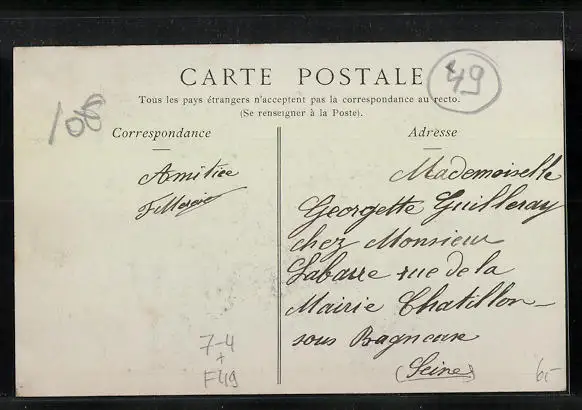 CARTE POSTALE
49
Tous les pays étrangers n'acceptent pas la correspondance au recto.
(Se renseigner à la Poste).
108
Correspondance
Amitiée
Adresse
Mademoiselle
Georgette Guilleray
chez Monsieur
Labarre rue de la
Mairie Chatillon-
sous Bagneux
(Seine)
7-4
+
F49
6-